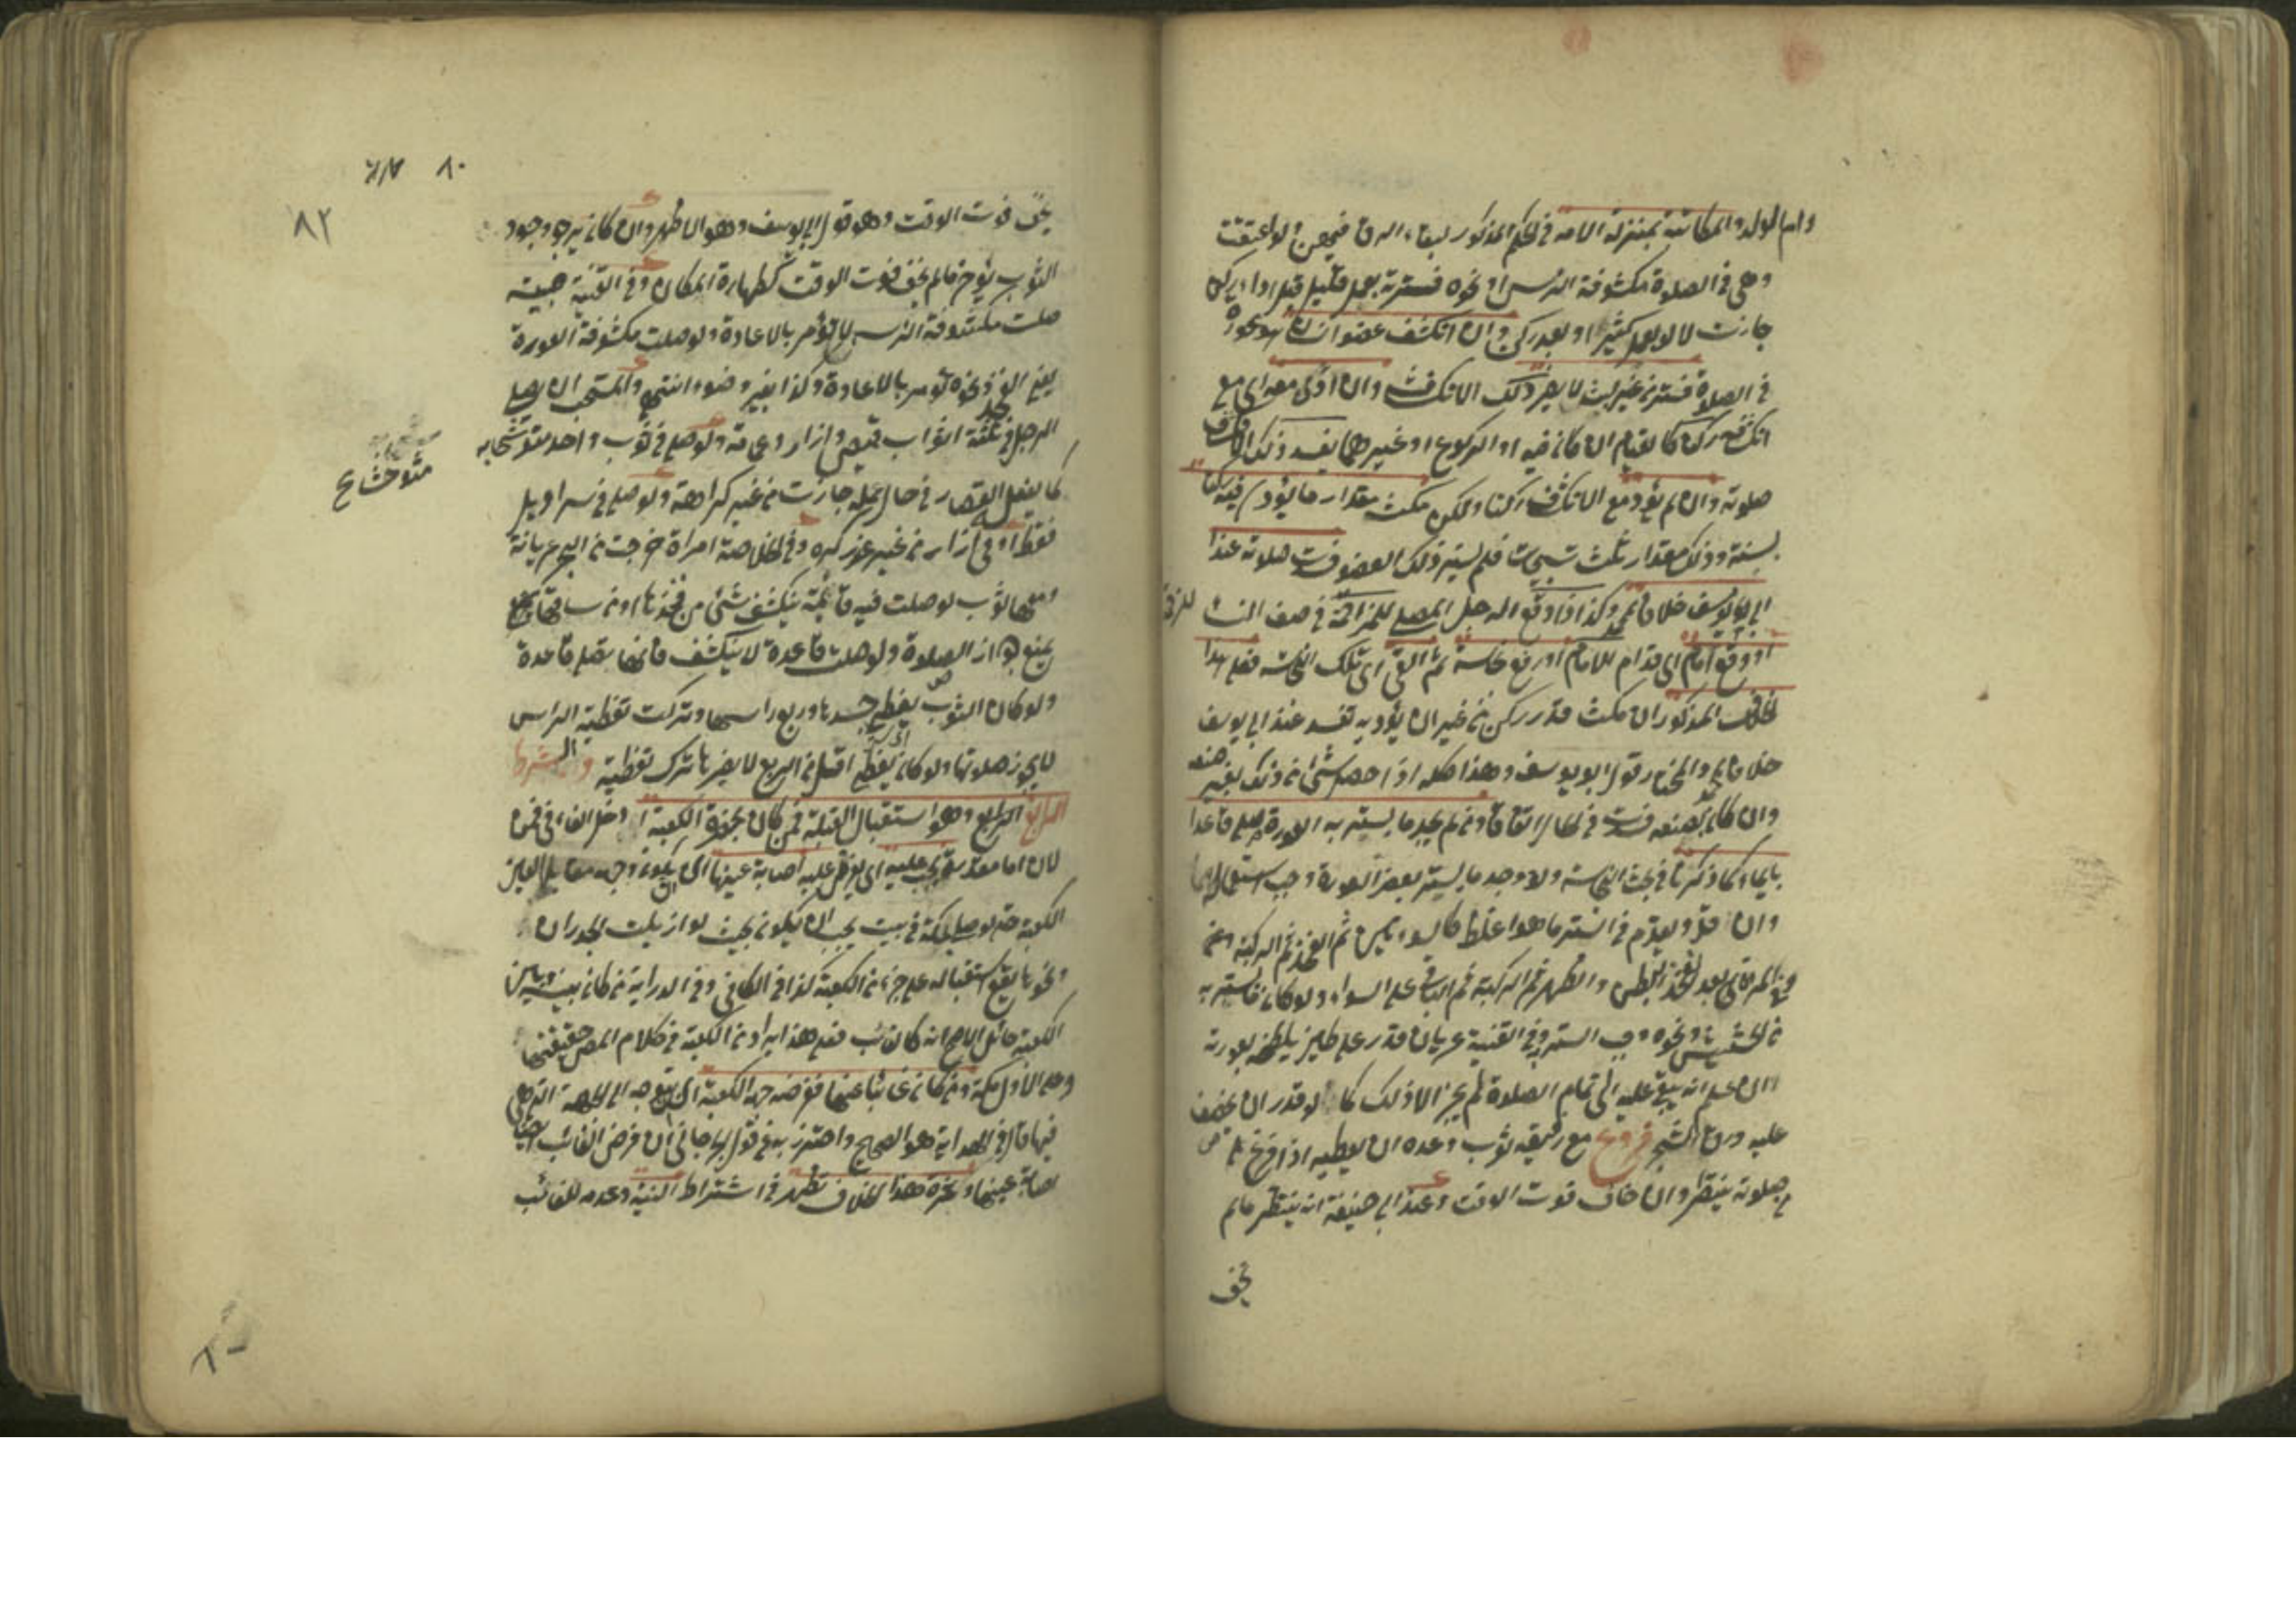 وام الولد والمكاتبة بمنزلة الامة في الحكم المذكور لبقاء الرق فيهن ولو اعتقت
وهى في الصلوة مكشوفة الرأس او نحوه فسترته بعمل قليل قبل اداء ركن
جازت لا لو بعمل كثير او بعد ركن وان انكشف عضو انسان هو عورة
في الصلوة فستر من غير لبث لا يضره ذلك الانكشاف وان ادى معه اى مع
انكشافه ركنا كالقيام ان كان فيه او الركوع او غيرهما يفسد ذلك الانكشاف
صلوته وان لم يؤد مع الانكشاف ركنا ولكن مكث مقدار ما يؤدى فيه ركنا
بسنته وذلك مقدار ثلث تسبيحات فلم يستر ذلك العضو فسدت صلوته عند
ابى يوسف خلافا لمحمد وكذا اذا وقع الرجل المصلى للمزاحمة في صف النساء
او وقع امام اى قدام الامام او رفع نجاسة ثم القى اى تلك النجاسة فعلى هذا
الخلاف المذكور ان مكث قدر ركن من غير ان يؤديه تفسد عند ابى يوسف
خلافا لمحمد والمختار قول ابو يوسف وهذا كله اذا حصل شئ من ذلك بغير صنعه
وان كان بصنعه فسدت في الحال اتفاقا ومن لم يجد ما يستر به العورة صلى قاعدا
بايماء كما ذكرنا في بحث النجاسة ولو وجد ما يستر بعض العورة وجب استعماله
وان قل ويقدم في الستر ما هو اغلظ كالسوءتين ثم الفخذ ثم الركبة وفى
المرأة بعد الفخذ البطن والظهر ثم الركبة ثم الباقى على السواء ولو كان ما يستر به
من الحشيش ونحوه وجب الستر وفى القنية عريان قدر على طين يلطخ به عورته
ان علم انه يبقى عليه الى تمام الصلوة لم يجز الا ذلك كما لو قدر ان يخصف
عليه ورق الشجر فروع مع رفيقه ثوب وعده ان يعطيه اذا فرغ من
صلوته ينتظر وان خاف فوت الوقت وعند ابى حنيفة انه ينتظر مالم
يخف
٨٠
٨٢
يخف فوت الوقت وهو قول ابى يوسف وهو الاظهر وان كان يرجو وجود
الثوب يؤخر مالم يخف فوت الوقت كطهارة المكان وفى القنية صبية
صلت مكشوفة الرأس لا تؤمر بالاعادة ولو صلت مكشوفة العورة
يعنى الفخذ ونحوه تؤمر بالاعادة وكذا بغير وضوء انتهى والمستحب ان يصلى
الرجل في ثلثة اثواب قميص وازار وعمامة ولو صلى في ثوب واحد متوشحا به
كما يفعله القصار في حال عمله جازت من غير كراهة ولو صلى في سراويل
متوشحا ع
فقط او في ازار من غير عذر كره وفى الخلاصة امراة خرجت من البحر عريانة
ومعها ثوب لو صلت فيه قائمة ينكشف شئ من فخذها او من ساقها ما
يمنع جواز الصلوة ولو صلت قاعدة لا ينكشف فانها تصلى قاعدة
ولو كان الثوب يغطى جسدها وربع راسها وتركت تغطية الرأس
لا يجوز صلوتها ولو كان يغطى اقل من الربع لا يضرها ترك تغطيته والشرط
الرابع الرابع وهو استقبال القبلة فمن كان بحضرة الكعبة دخل الفاء في فمن
لان اما مقدرة يجب عليه اى يفترض عليه اصابة عينها اى ان يكون وجهه مقابل لعين
الكعبة حتى لو صلى بمكة في بيت يجب ان يكون بحيث لو ازيلت الجدران
ونحوها يقع استقباله على جزء من الكعبة كذا في الكافى وفى الدراية من كان بينه وبين
الكعبة حائل الاصح انه كالغائب فعلى هذا يراد من الكعبة في كلام المص حقيقتها
وعلى الاول مكة ومن كان غائبا عنها ففرضه جهة الكعبة اى يتوجه الى الجهة التى هى
فيها قال في الهداية هو الصحيح واحترز به عن قول الجرجانى ان فرض الغائب ايضا
اصابة عينها وثمرة هذا الخلاف تظهر في اشتراط النية وعدمه للغائب